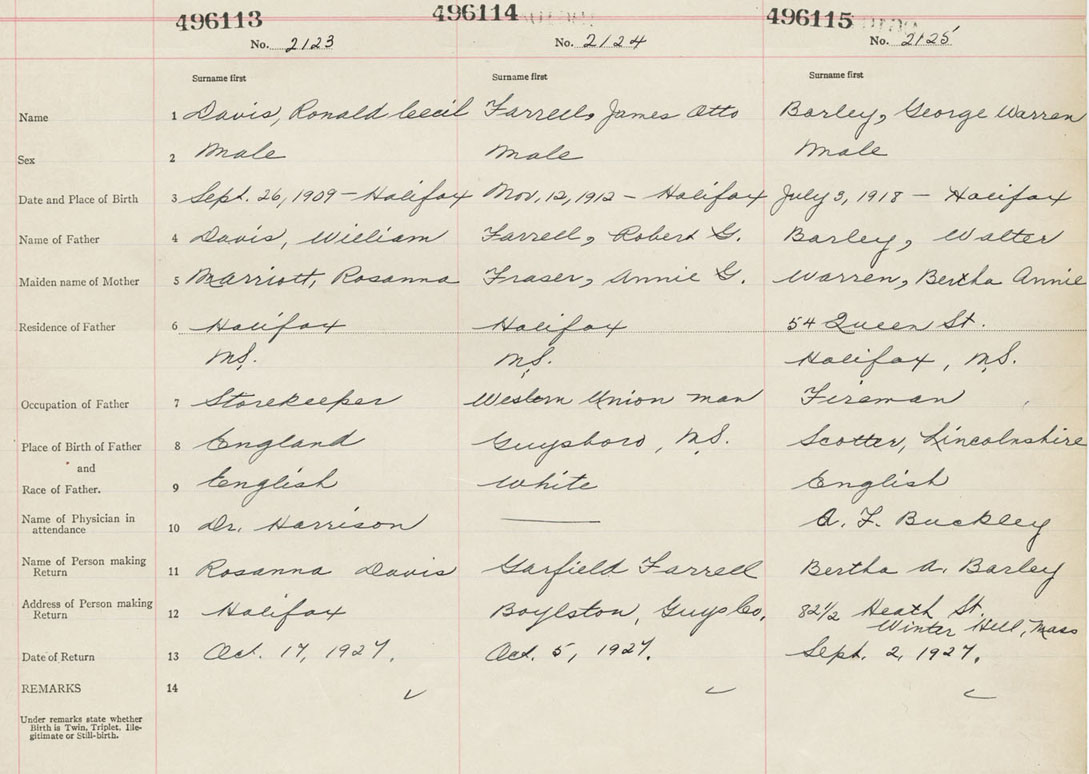 496113 496114 496115
No. 2123 No. 2124 No. 2125
Surname first Surname first Surname first
Name 1 Davis, Ronald Cecil Farrell, James Otto Barley, George Warren
Sex 2 Male Male Male
Date and Place of Birth 3 Sept. 26, 1909 – Halifax Nov, 12, 1912 – Halifax July 3, 1918 – Halifax
Name of Father 4 Davis, William Farrell, Robert G. Barley, Walter
Maiden name of Mother 5 Marriott, Rosanna Fraser, Annie G. Warren, Bertha Annie
Residence of Father 6 Halifax Halifax 54 Queen St.
N.S. N.S. Halifax, N.S.
Occupation of Father 7 Storekeeper Western Union man Fireman
Place of Birth of Father 8 England Guysboro, N.S. Scotter, Lincolnshire
and
Race of Father. 9 English White English
Name of Physician in
attendance 10 Dr. Harrison —— A. F. Buckley
Name of Person making
Return 11 Rosanna Davis Garfield Farrell Bertha A. Barley
Address of Person making
Return 12 Halifax Boylston, Guys Co. 82½ Heath St.
Winter Hill, Mass
Date of Return 13 Oct. 17, 1927. Oct. 5, 1927. Sept. 2, 1927.
REMARKS 14
Under remarks state whether
Birth is Twin, Triplet, Ille-
gitimate or Still-birth.